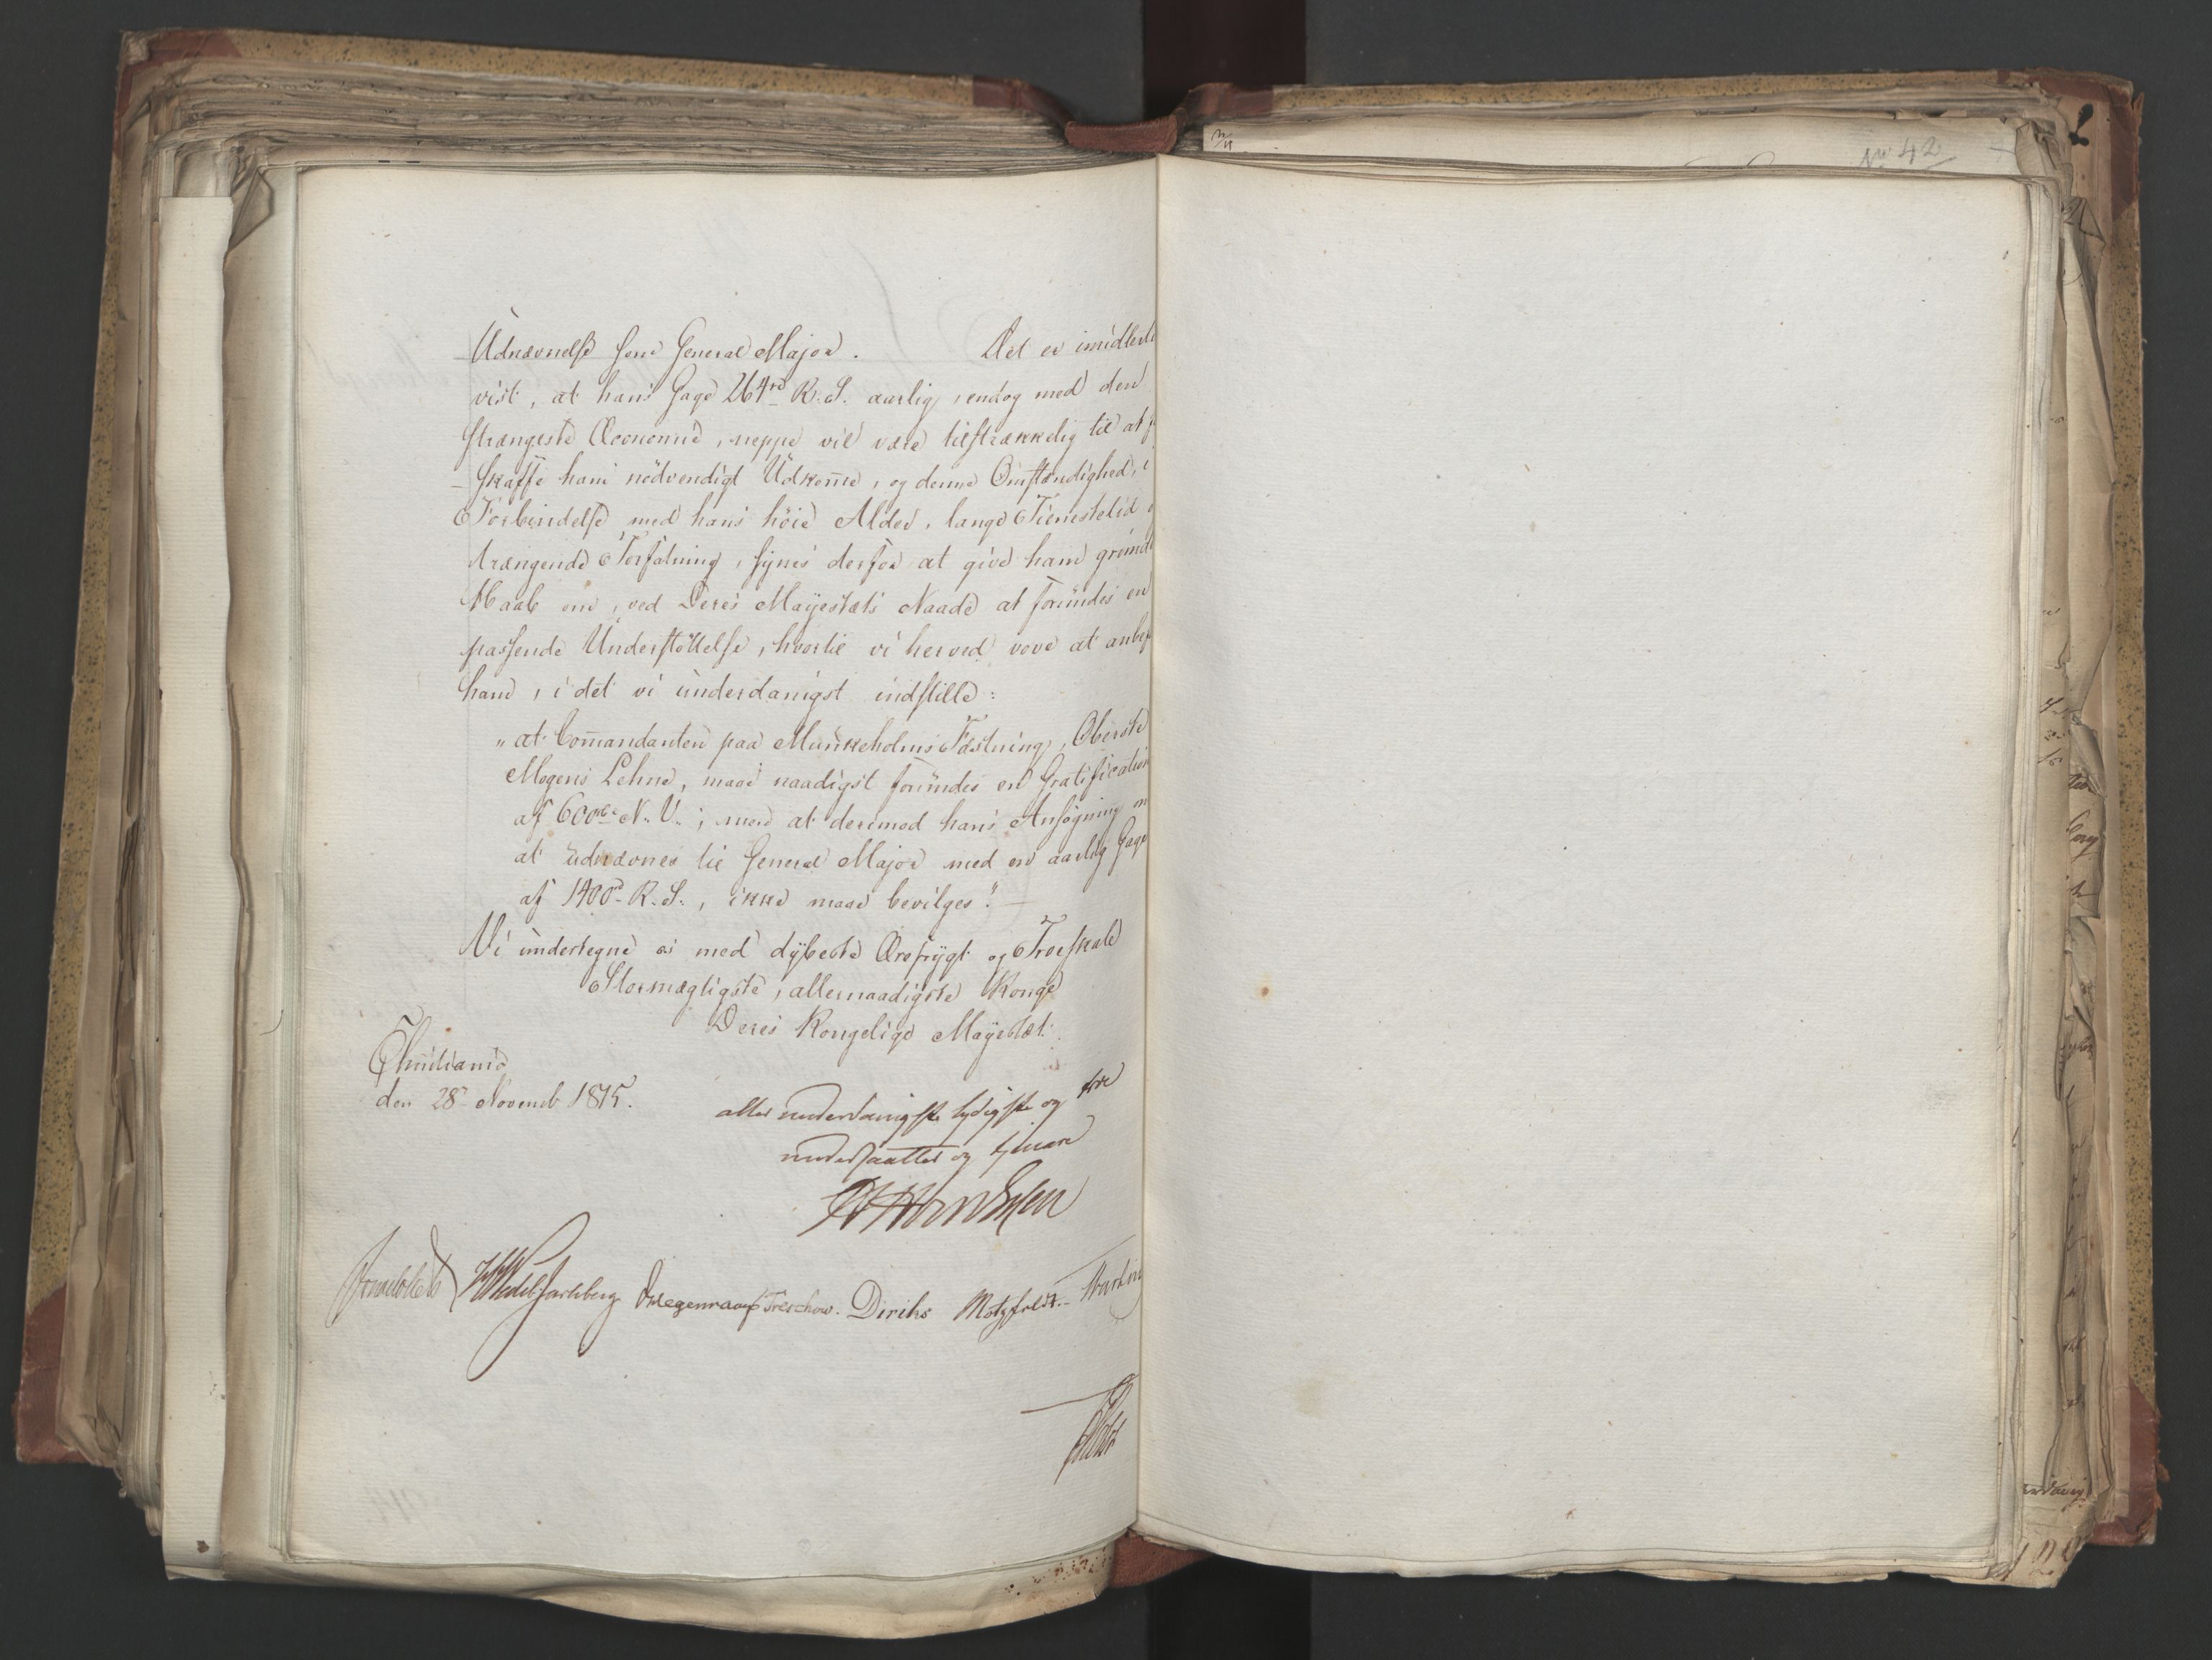 Udnævnelse som General Major. Det er imidlerti
vist, at hans Gage 264rd R. S. aarlig, endog med den
strængeste Œconomie, neppe vil være tilstrækkelig til at f
skaffe ham nödvendigt Udkom̅e, og denne Omstændighed, i
Forbindelse med hans höie Alder, lange Tienestetid o
trængende Forfatning, synes derfor at give ham grund
Haab om, ved Deres Mayestæts Naade at forundes en
passende Understöttelse, hvortil vi herved vove at anbef
ham, i det vi underdanigst indstille:
„at Com̅andanten paa Munkeholms Fæstning, Oberste
Mogens Lehne, maae naadigst forundes en Gratification
af 600rd N. V.; men at derimod hans Ansøgning om
at udnævnes til General Major med en aarlig Gage
af 1400rd R. S., ikke maae bevilges." —
Vi undertegne os med dybeste Ærefrygt og Troeskab
Stormægtigste, allernaadigste Konge
Deres Kongelige Mayestæt.
Christiania
den 28de Novemb 1815.
aller underdanigste lydigste og troe
undersaatter og tjenere
Sommerhielm
WedelJarlsberg
Krieg
Treschow. Diriks Motzfeldt.
Holst
No 42